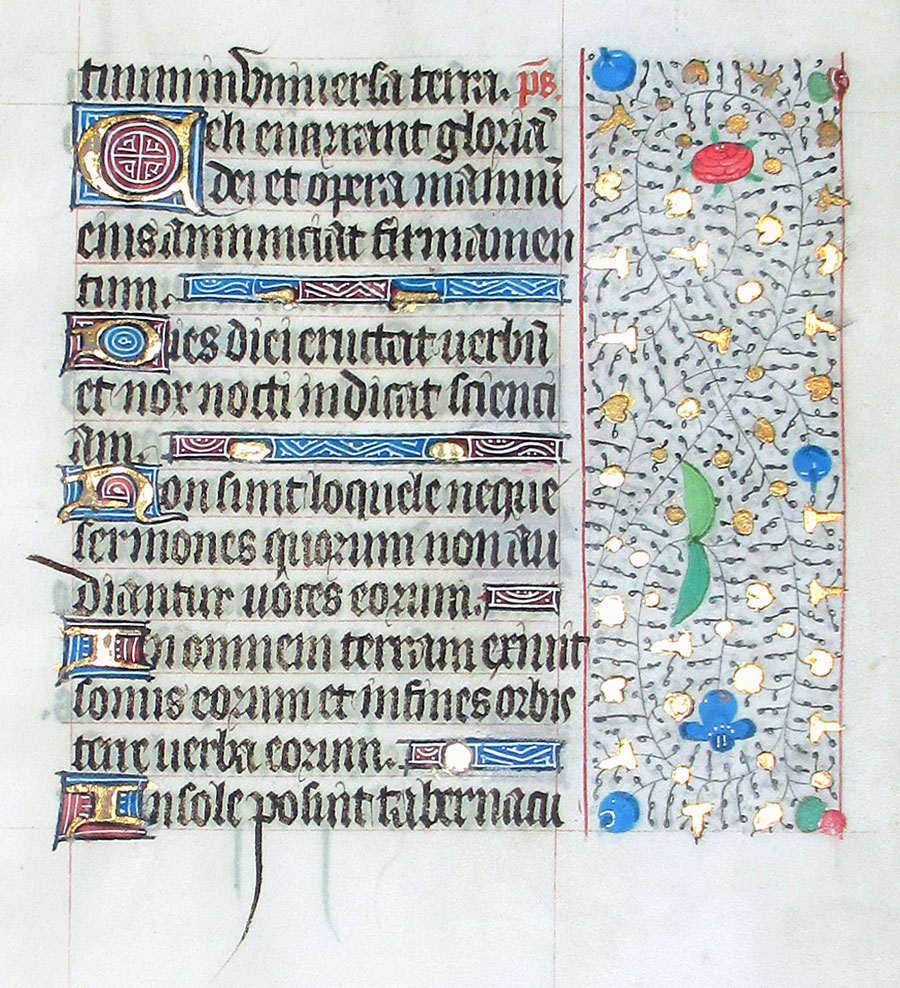 tuum in vniuersa terra. p̄s.
Celi enarrant gloriā
dei et opera manuū
eius annunciat firmamen
tum.
Dies diei eructat uerbū
et nox nocti indicat scienci
am.
Non sunt loquele neque
sermones quorum non au
diantur uoces eorum.
In omnem terram exiuit
sonus eorum et in fines orbis
terre uerba eorum.
In sole posuit tabernacu